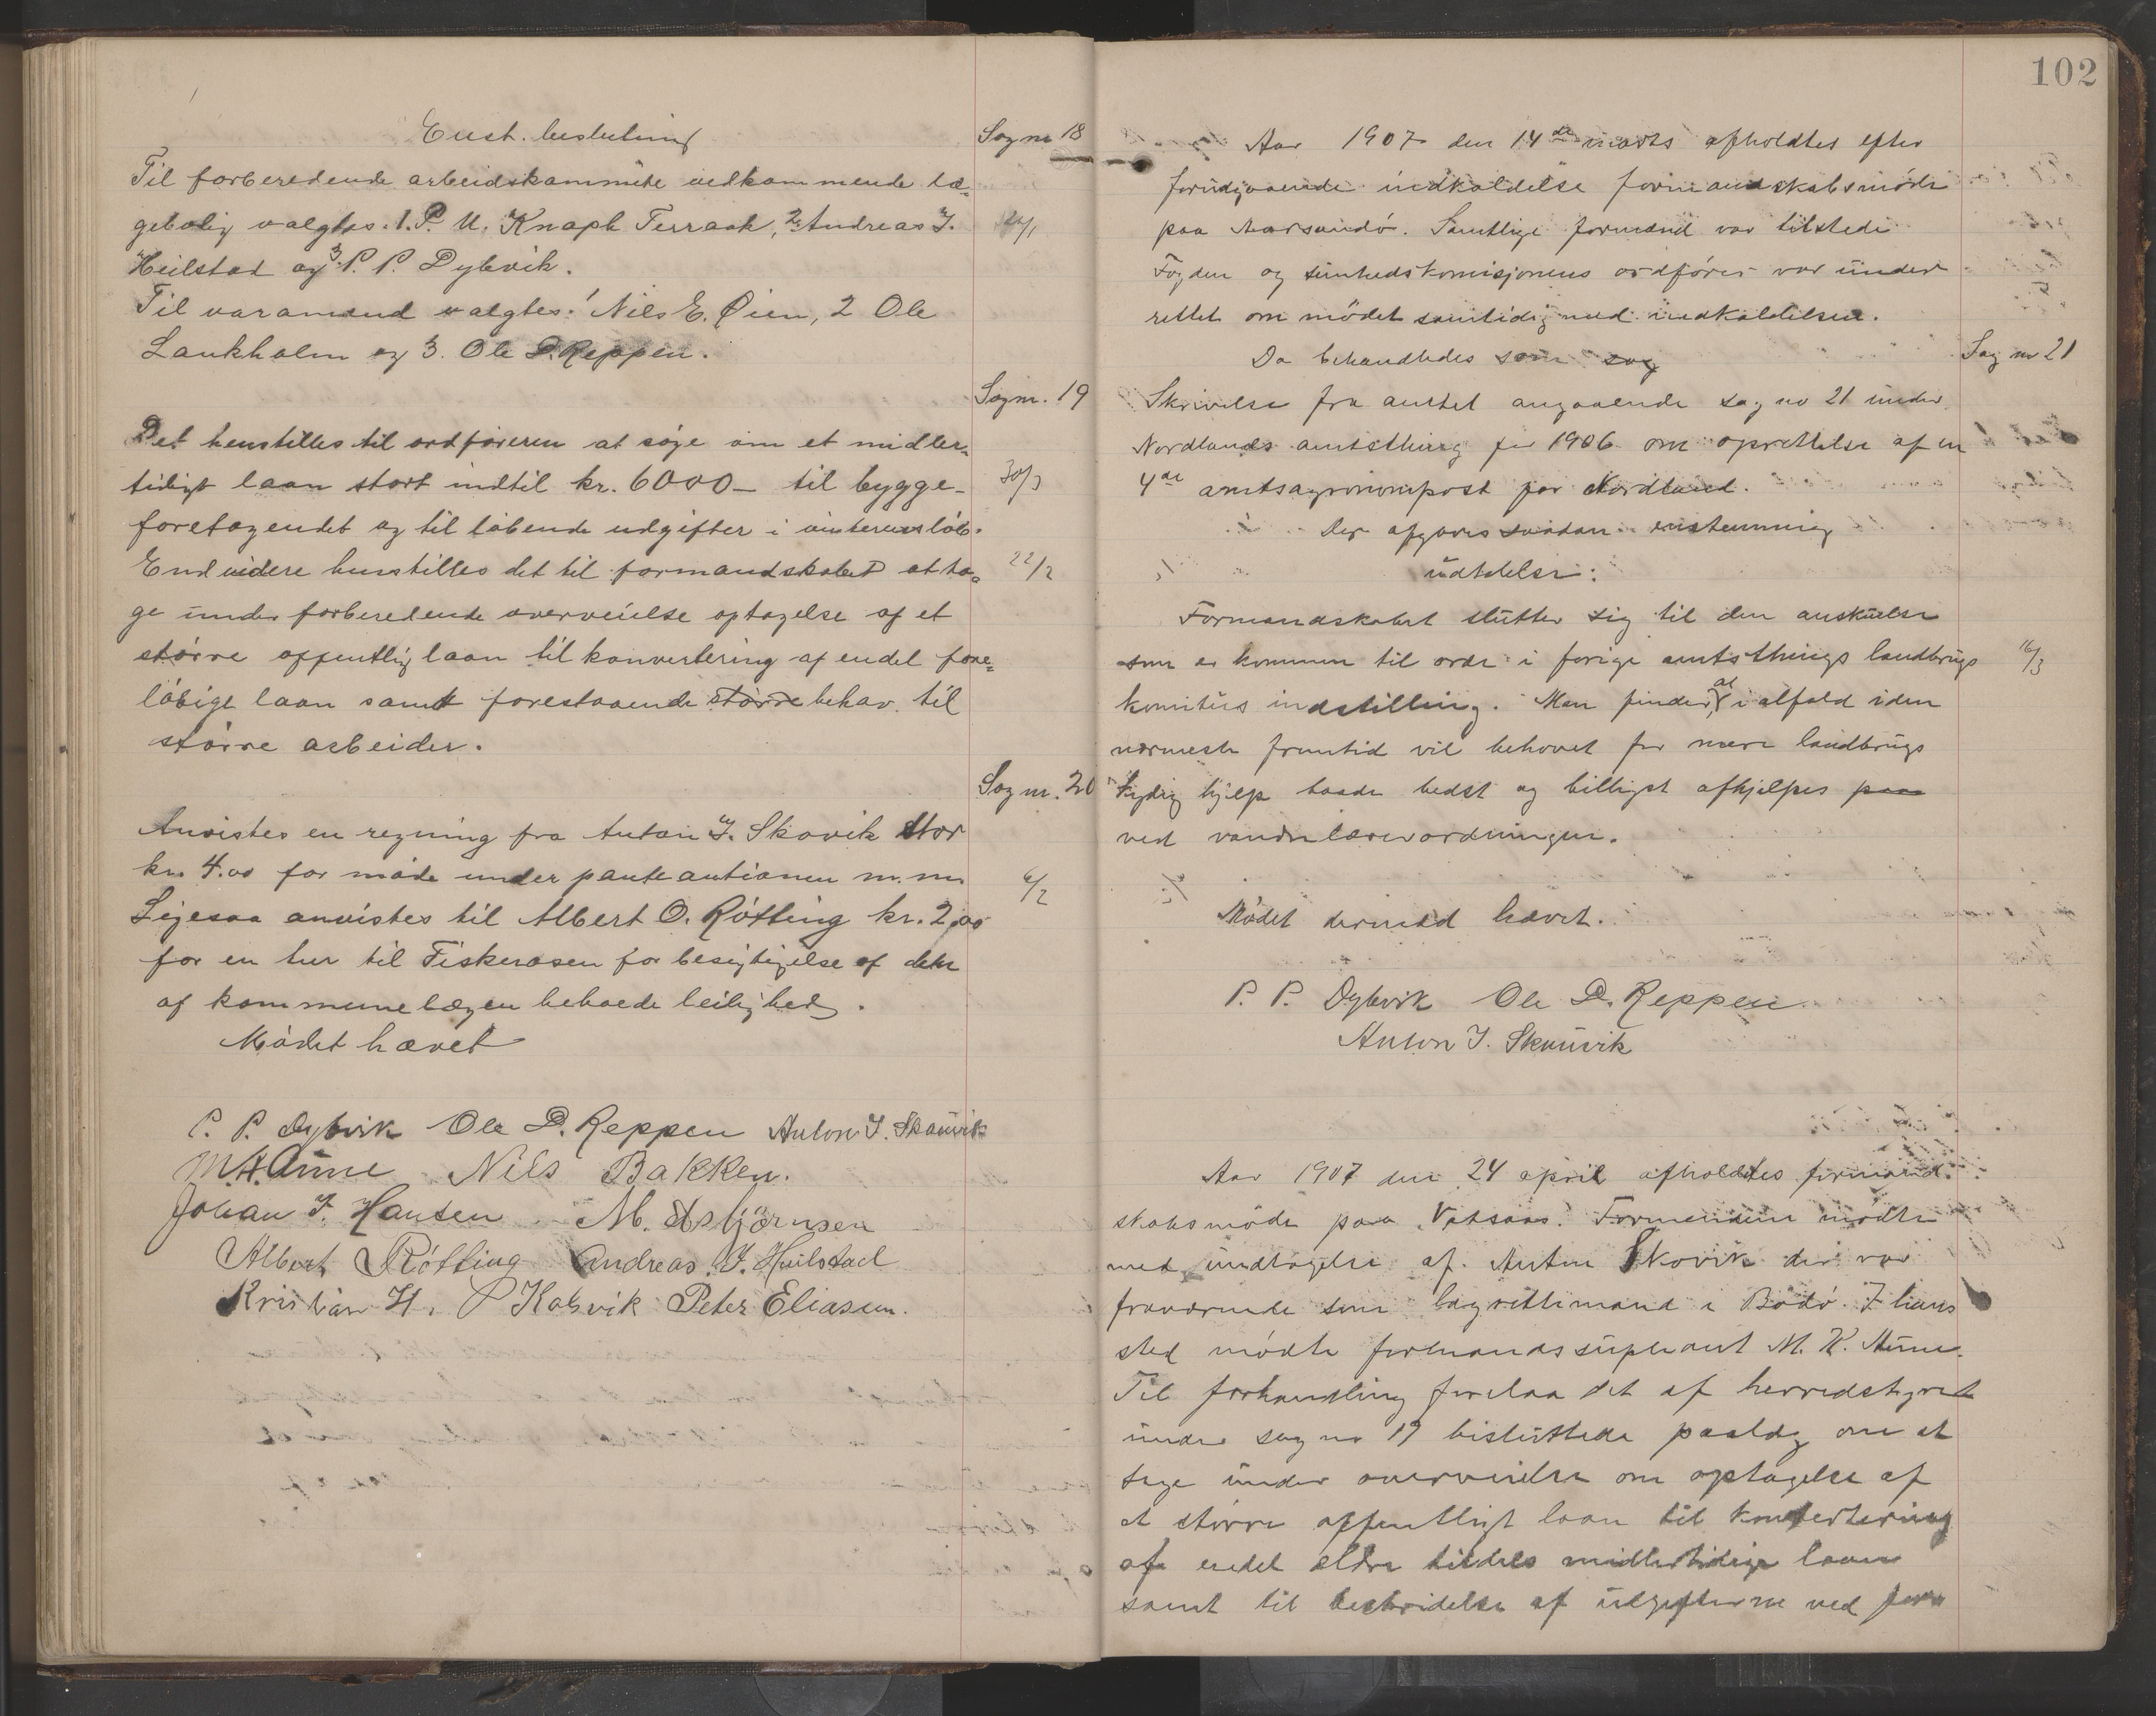 Enst. beslutning
Sag nr 18
Til forberedende arbeidskommite vedkommende læ-
gebolig valgtes. 1. P. M. Knaph Terraak, 2. Andreas J.
Heilstad og 3. P. P. Dybvik.
Til varamænd valgtes: 1 Nils E. Øien, 2 Ole
Laukholm og 3. Ole D. Reppen.
Sag nr. 19
Det henstilles til ordføreren at søge om et midler-
tidigt laan stort indtil kr. 6000 — til bygge-
30/3
foretagendet og til løbende udgifter i vinterens løb.
Endvidere henstilles det til formandskabet at ta-
22/2
ge under forberedende overveielse optagelse af et
større offentlig laan til konvertering af endel fore-
løbige laan samt forestaaende større behov til
større arbeider.
Sag nr. 20
Anvistes en regning fra Anton J. Skavik stor
kr. 4.00 for møde under panteauktionen m.m.
6/2
Ligesaa anvistes til Albert O. Røtting kr. 2,00
for en tur til Fiskerosen for besigtigelse af den
af kommunelægen beboede leilighed.
Mødet hævet
P. P. Dybvik Ole D. Reppen Anton J. Skauvik
M. H. Aune Nils Bakken.
Johan J. Hansen M. Asbjörnsen
Albert Røtting Andreas J. Heilstad
Kristian H. P Kalsvik Peter Eliasen.
102
Aar 1907 den 14de marts afholdtes efter
forudgaaende indkaldelse formandskabsmøde
paa Aarsandø. Samtlige formænd var tilstede
Fogden og sunhedskomisjonens ordfører var under
rettet om mødet samtidig med indkaldelsen.
Da behandledes som sag
Sag nr 21
Skrivelse fra amtet angaaende sag no 21 under
Nordlands amtsthing for 1906 om oprettelse af en
4de amtsagronompost for Nordland.
Der afgaves saadan enstemmig
udtalelse:
Formandskabet slutter sig til den anskuelse
som er kommen til orde i forige amtsthings landbrugs
16/3
komites indstilling. Man finder at i alfald i den
nærmeste fremtid vil behovet for mere landbrugs
kydig hjelp baade bedst og billigst afhjelpes paa
ved vandrelærerordningen.
Mødet dermed hævet.
P. P. Dybvik Ole D. Reppen
Anton J. Skauvik
Aar 1907 den 24 april afholdtes formand-
skabsmøde paa Vatsaas. Formændene mødte
med undtagelse af Anton Skovik der var
fraværende som lagrettemand i Bodø. I hans
sted mødte formandssupleant M. H. Aune.
Til forhandling forelaa det af herredstyret
under sag no 19 besluttede paalæg om at
tage under overveielse om optagelse af
et større offentligt laan til konvertering
af endel eldre tildels midlertidige laan
samt til bestridelse af udgifterne ved fore